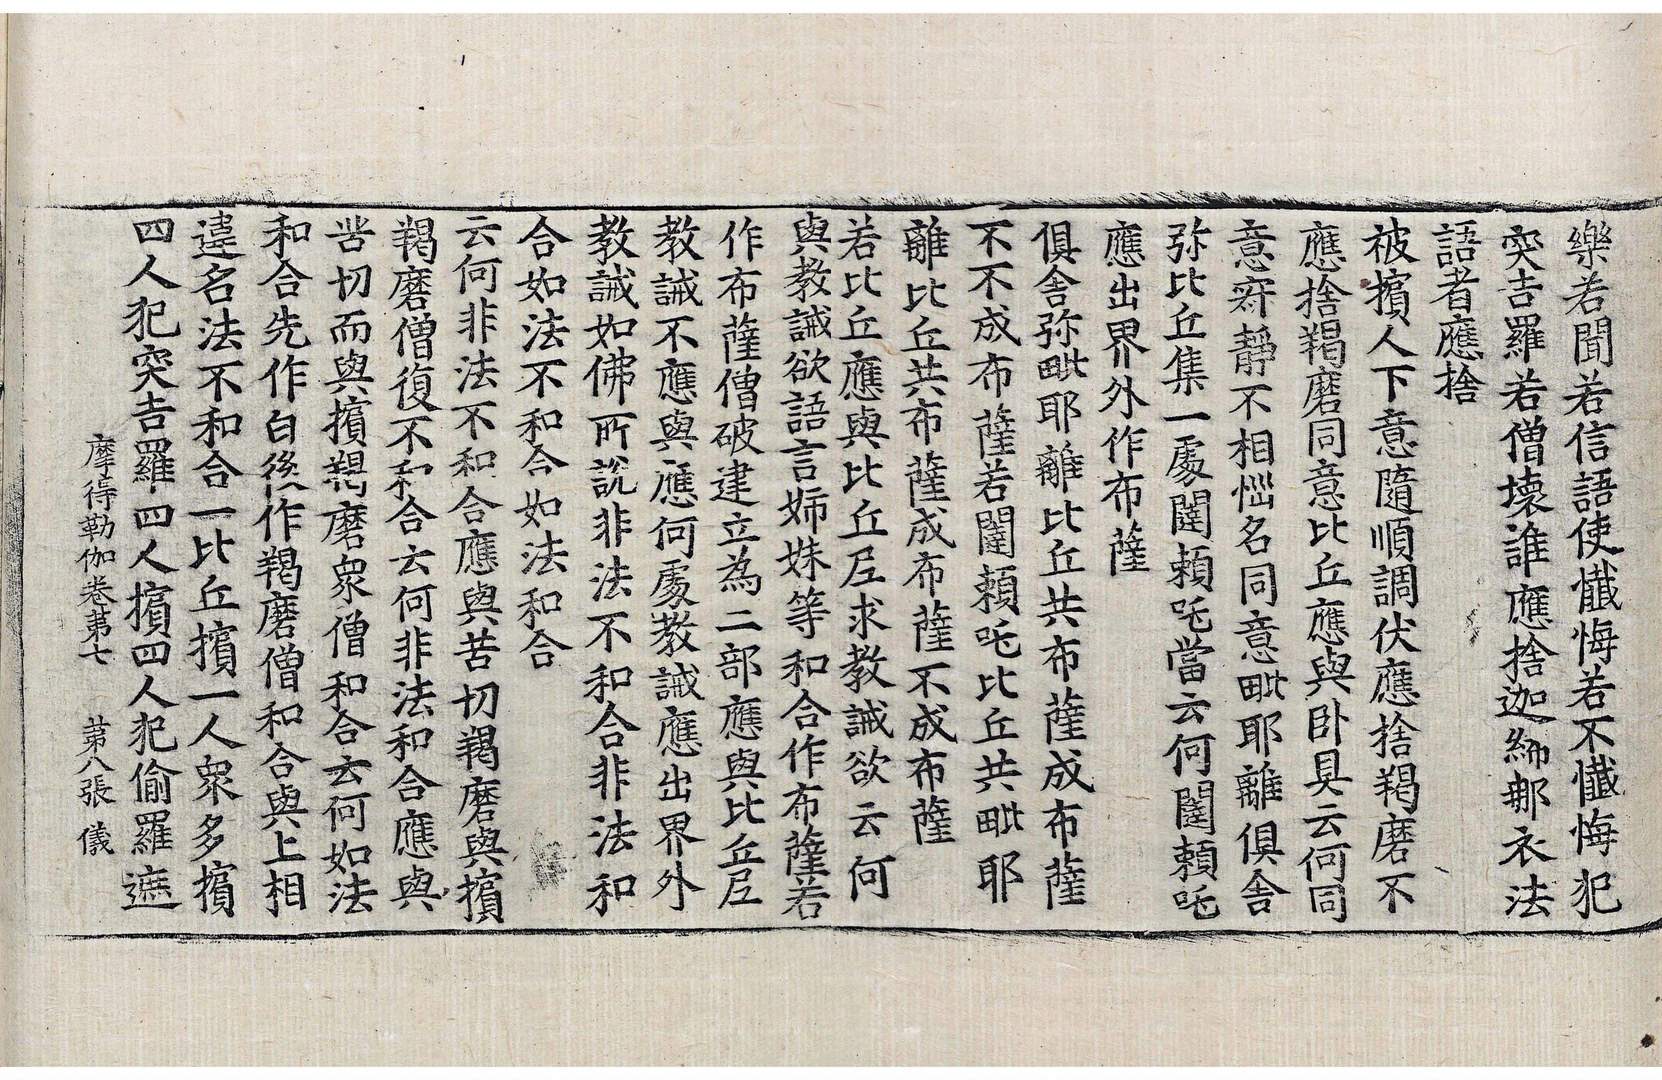 樂若聞若信語使懴悔若不懴悔犯
突吉羅若僧壞誰應捨迦絺那衣法
語者應捨
被擯人下意隨順調伏應捨羯磨不
應捨羯磨同意比丘應與卧具云何同
意寂靜不相惱名同意毗耶離俱舍
弥比丘集一處闥賴吒當云何闥賴吒
應出界外作布薩
俱舍弥毗耶離比丘共布薩成布薩
不不成布薩若闥賴吒比丘共毗耶
離比丘共布薩成布薩不成布薩
若比丘應與比丘尼求教誡欲云何
與教誡欲語言姉妹等和合作布薩若
作布薩僧破建立為二部應與比丘尼
教誡不應與應何處教誡應出界外
教誡如佛所說非法不和合非法和
合如法不和合如法和合
云何非法不和合應與苦切羯磨與擯
羯磨僧復不和合云何非法和合應與
苦切而與擯羯磨衆僧和合云何如法
和合先作白後作羯磨僧和合與上相
違名法不和合一比丘擯一人衆多擯
四人犯突吉羅四人擯四人犯偷羅遮
摩得勒伽卷苐七 苐八張 儀